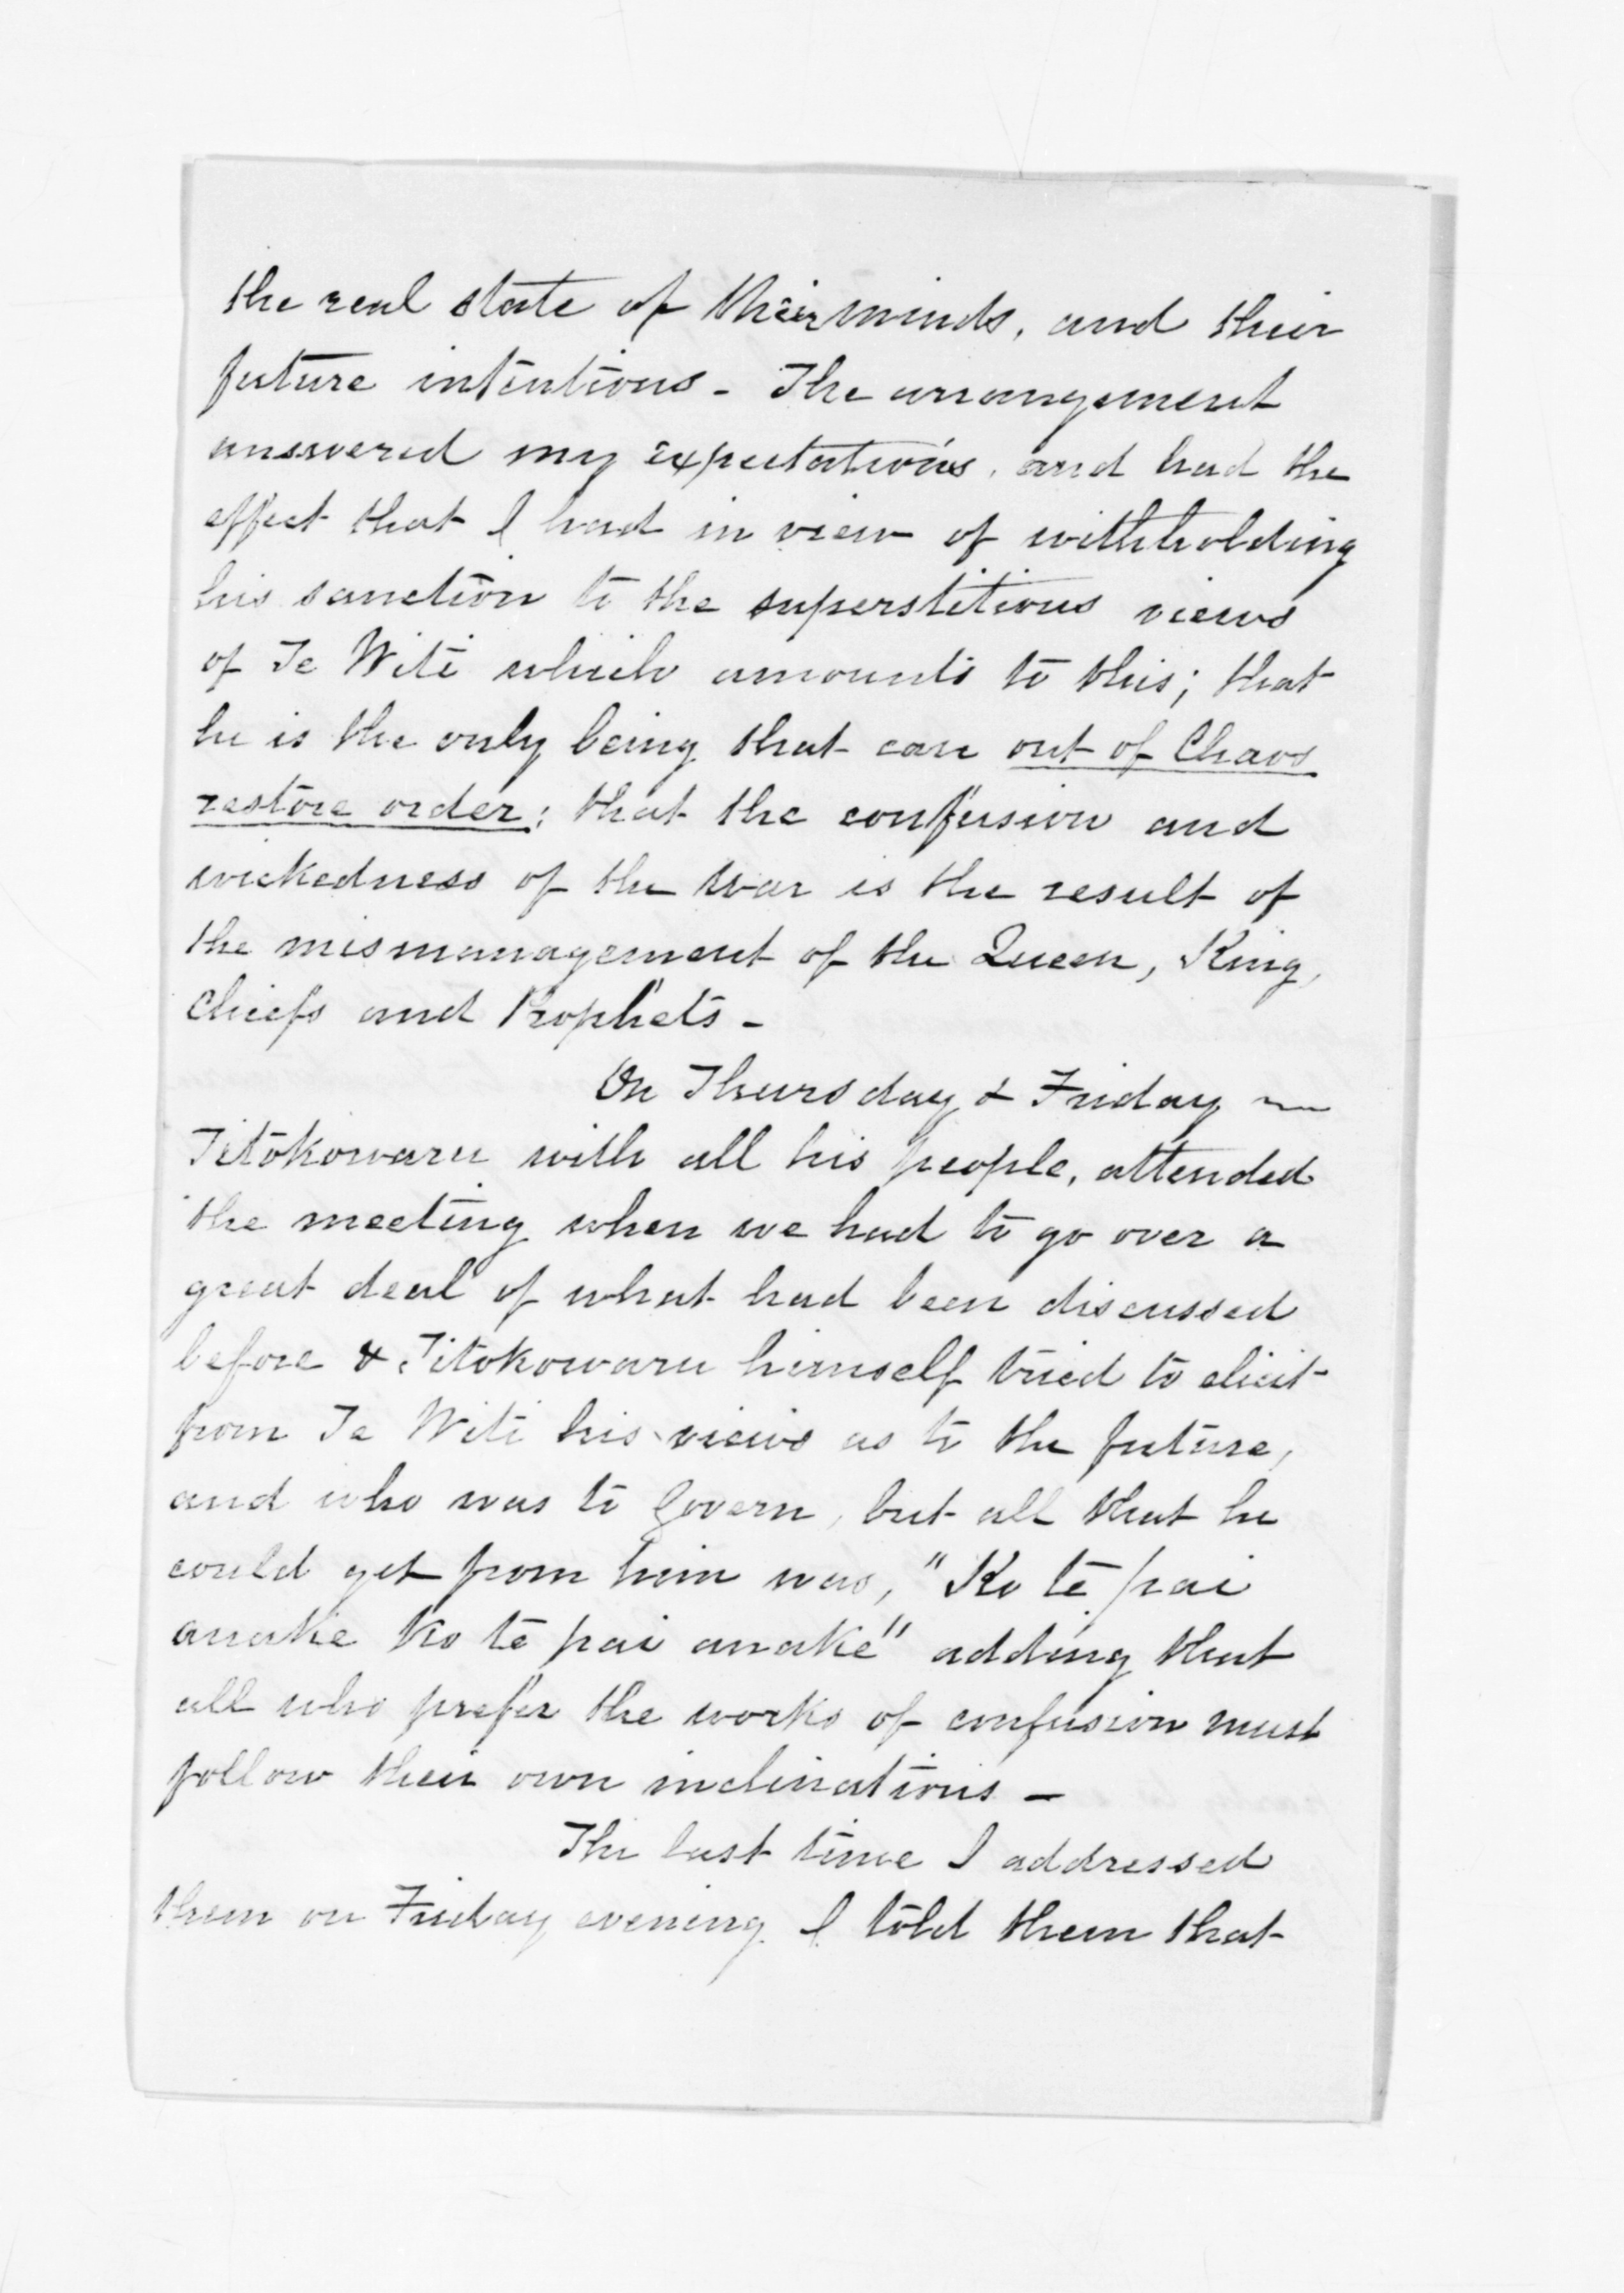 the real state of their minds, and their
future intentions - The arrangement
answered my expectations, and had the
effect that I had in view of withholding
his sanction to the superstitious views
of Te Witi which amounts to this; that
he is the only being that can out of Chaos
restore order; that the confusion and
wickedness of the war is the result of
the mismanagement of the Queen, King,
Chiefs and Prophets -
On Thursday & Friday
Titokowaru with all his people, attended
the meeting when we had to go over a
great deal of what had been discussed
before & Titokowaru himself tried to elicit
from Te Witi his views as to the future,
and who was to Govern, but all that he
could get from him was, "Ko te pai
anake ko te pai anake" adding that
all who prefer the works of confusion must
follow their own inclinations -
The last time I addressed
them on Friday evening I told them that